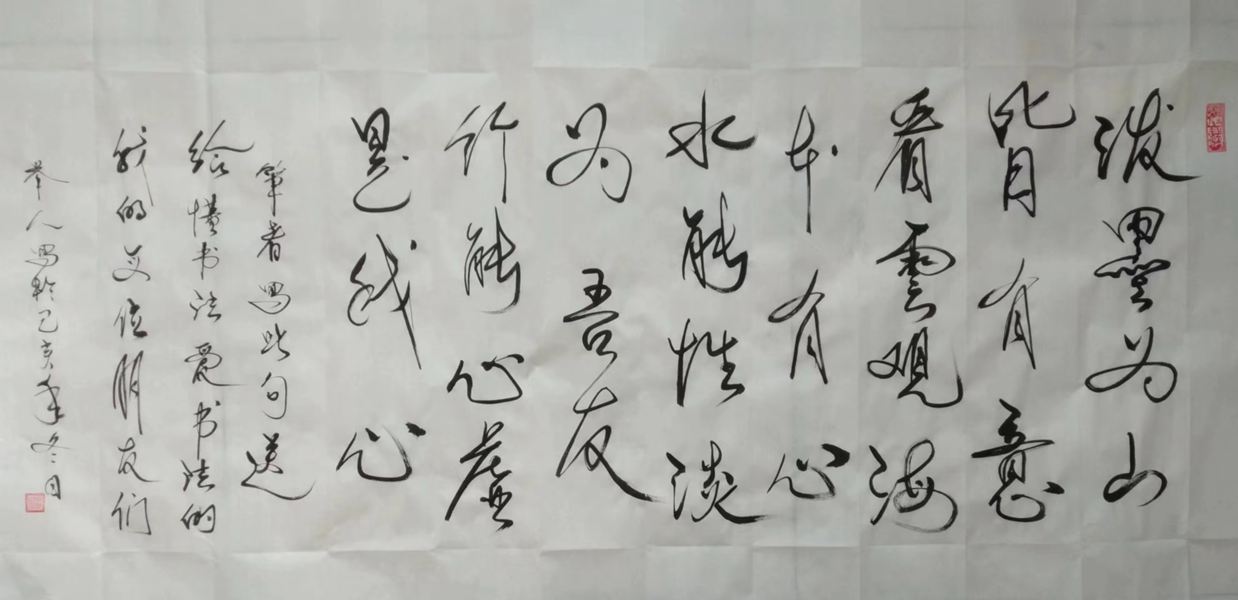 泼墨为山
皆有意
看雲观海
本有心
水能性淡
为吾友
竹能心虚
是我心
筆者写此句送
给懂书法爱书法的
我的各位朋友们
人写於己亥年冬日